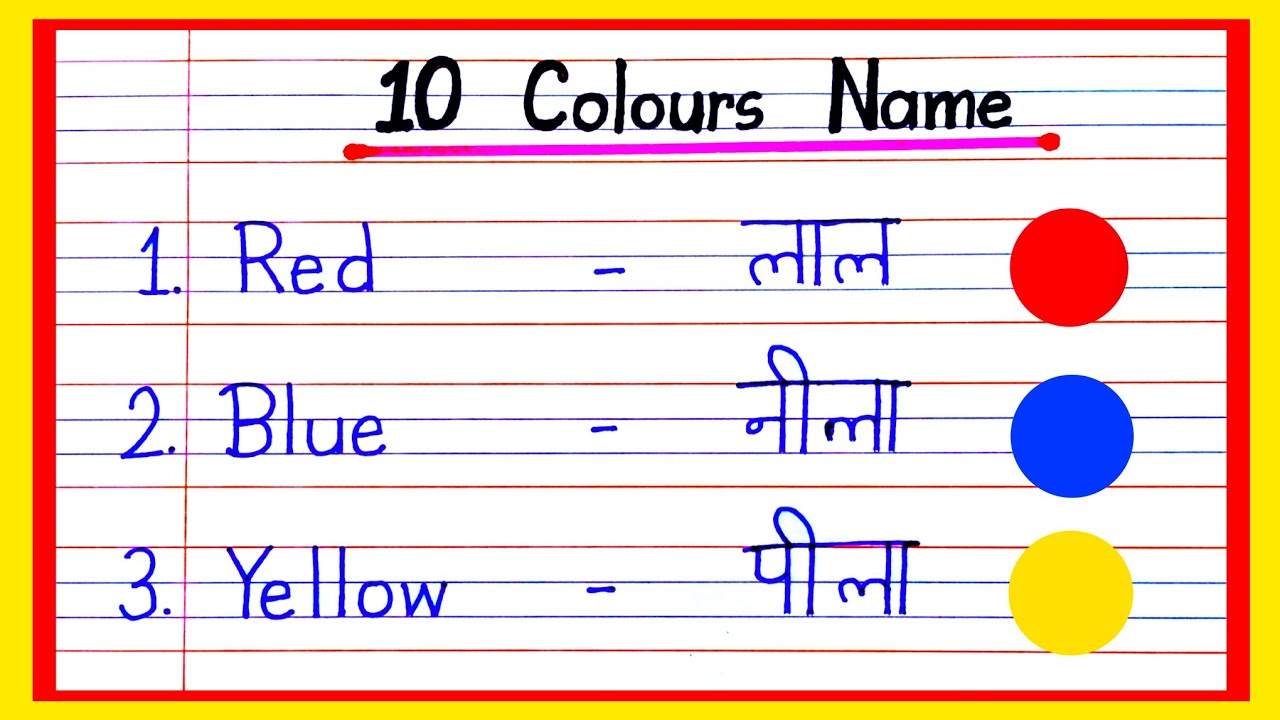 10 Colours Name
1. Red - लाल
2. Blue - नीला
3. Yellow - पीला